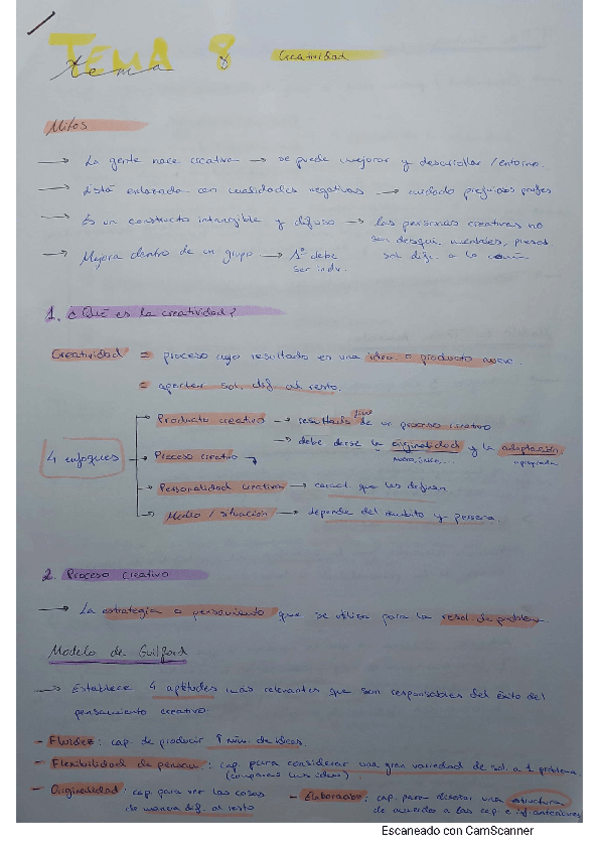 TEMA 8 Creatividad
tema
Mitos
→ La gente nace creativa → se puede mejorar y desarrollar / entorno.
→ Está enlazada con cualidades negativas → cuidado prejuicios profes
→ Es un constructo intangible y difuso → las personas creativas no
son desequi. mentales,
sol. dif. a lo común
→ Mejora dentro de un grupo → 1º debe
ser indv.
1. ¿Qué es la creatividad?
Creatividad = proceso cuyo resultado en una idea o producto nuevo.
= aportar sol. dif. al resto.
4 enfoques
Producto creativo → resultado de un proceso creativo
→ debe darse la originalidad y la adaptación
apropiada
Proceso creativo
Personalidad creativa → caract. que las definen
Medio / situación → depende del ámbito y persona
2. Proceso creativo
→ La estrategia o pensamiento que se utiliza para la resol. de problem.
Modelo de Guilford
→ Establece 4 aptitudes más relevantes que son responsables del éxito del
pensamiento creativo.
- Fluidez: cap. de producir ↑ núm. de ideas.
- Flexibilidad de pensam.: cap. para considerar una gran variedad de sol. a 1 problema
- Originalidad: cap. para ver las cosas
de manera dif. al resto
- Elaboración: cap. para diseñar una estructura
de acuerdo a las cap. e inf. anteriores
Escaneado con CamScanner